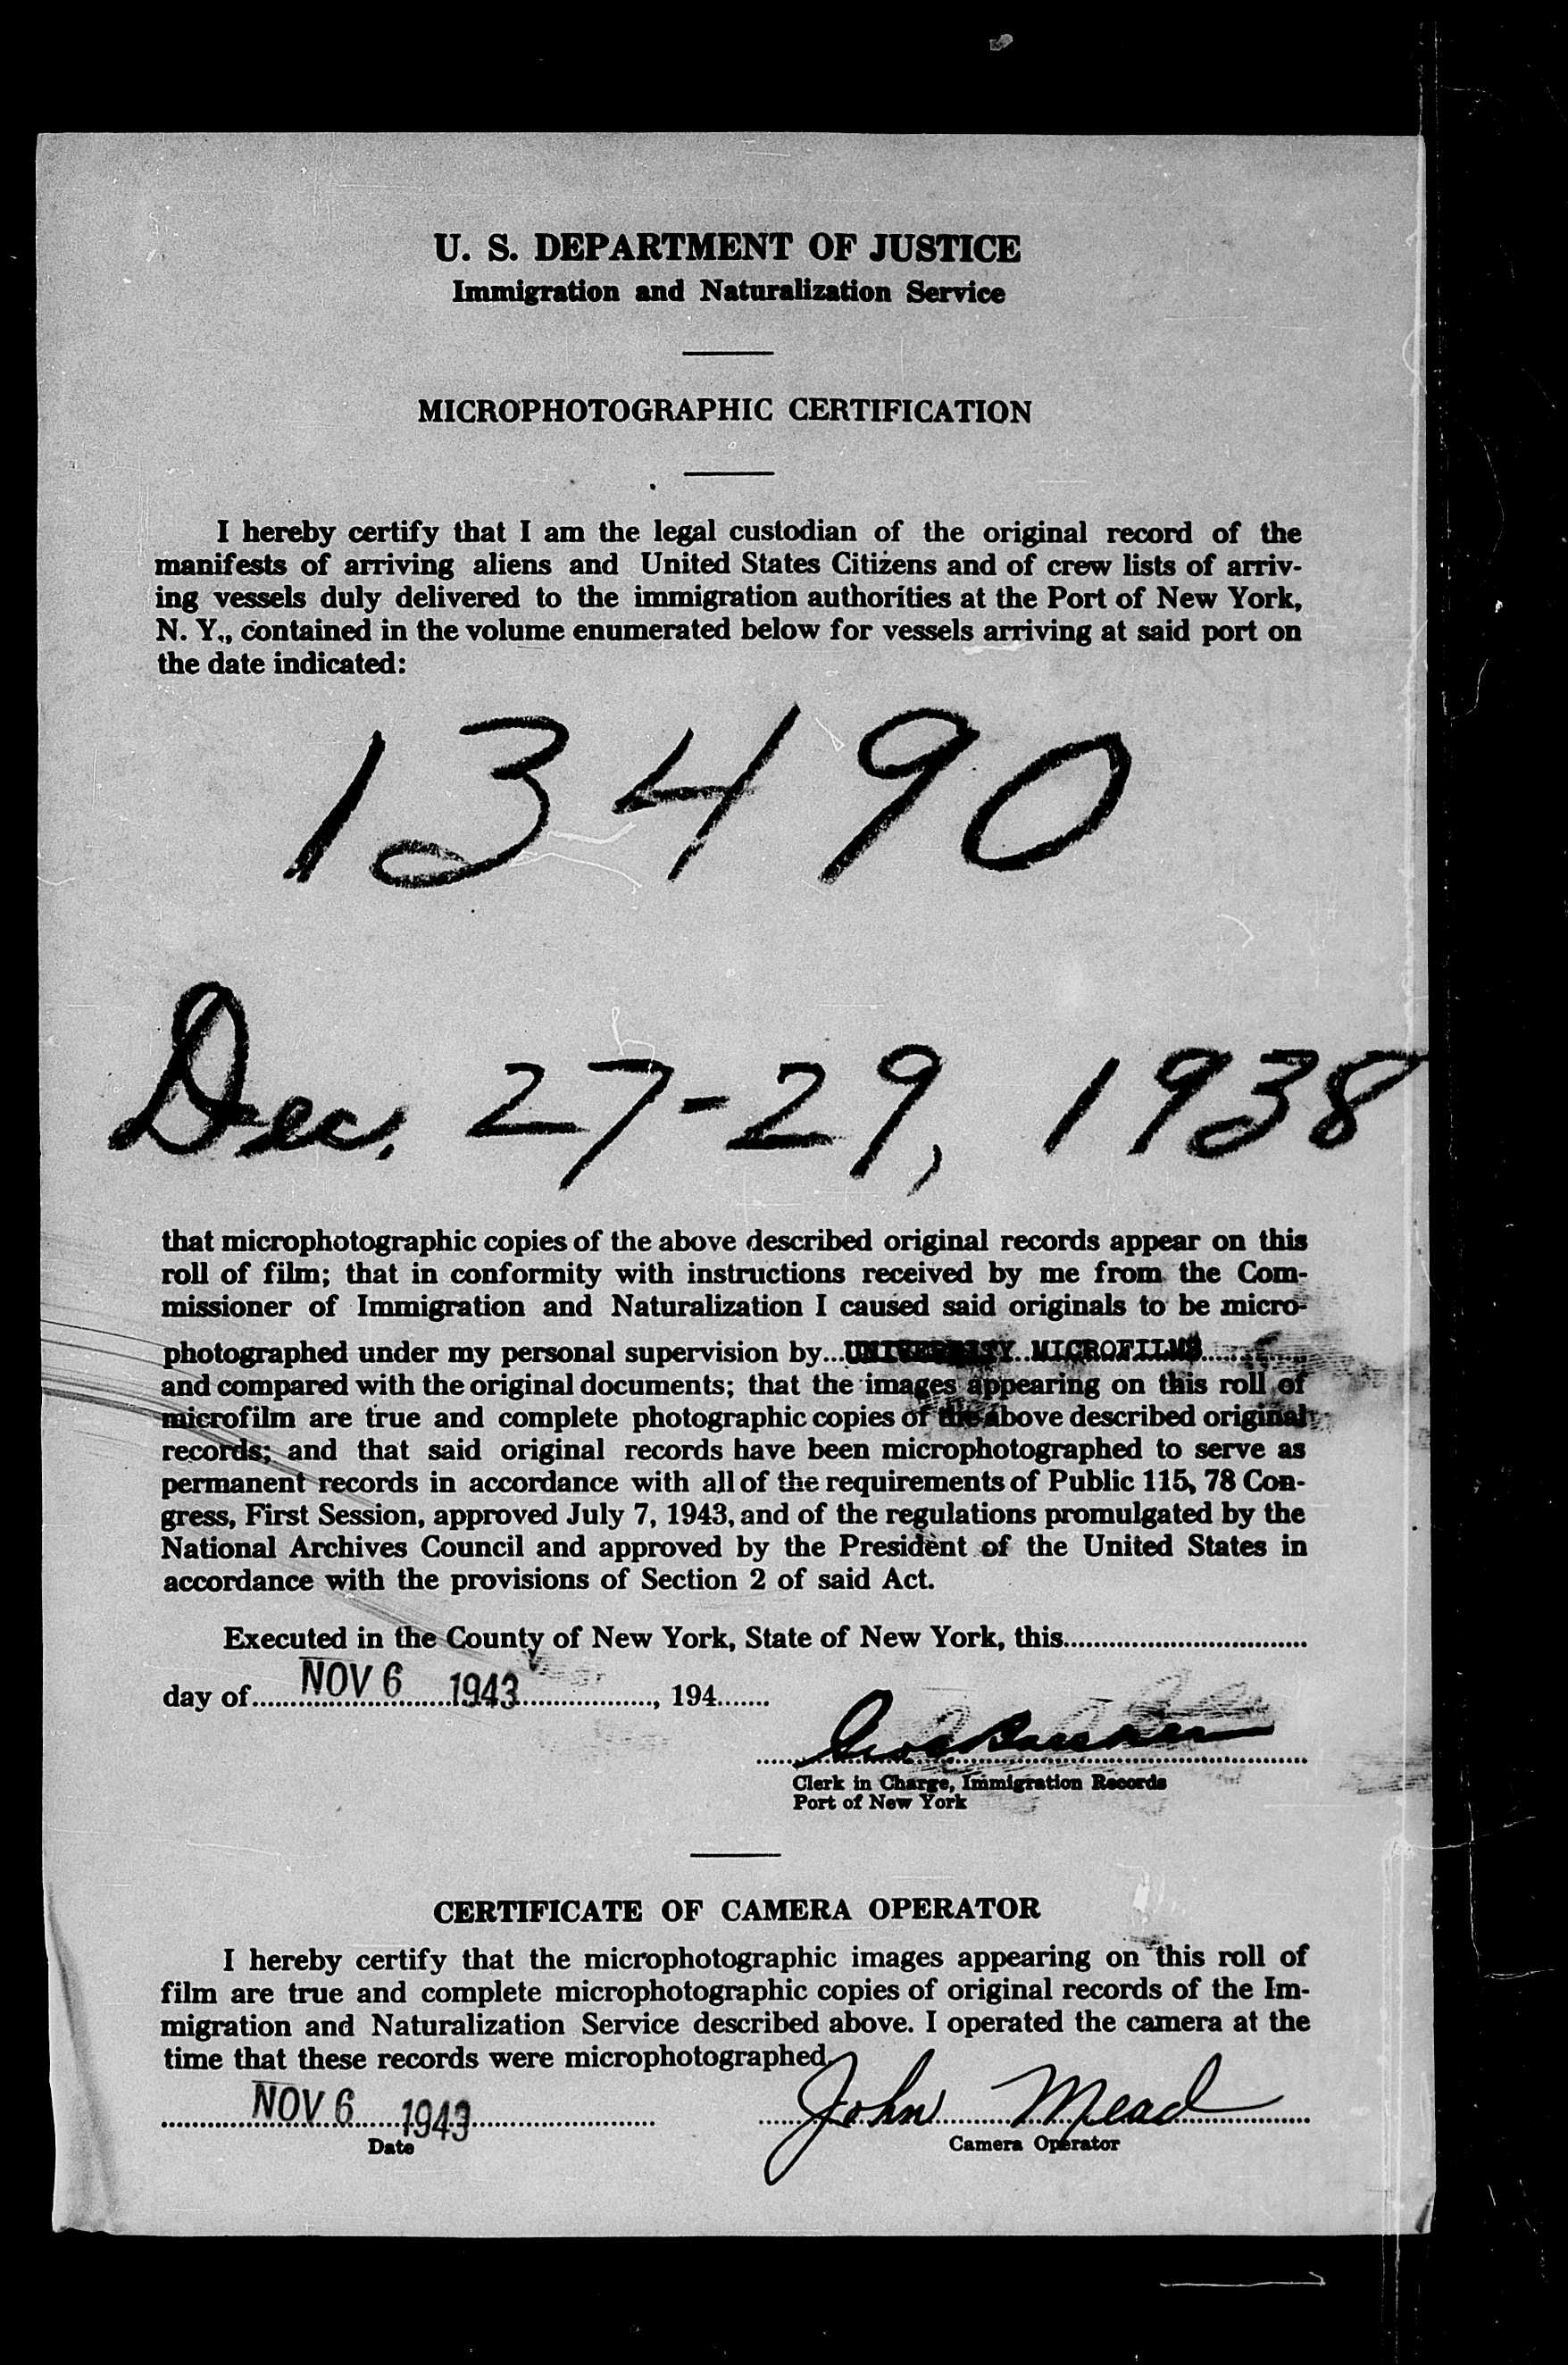 U. S. DEPARTMENT OF JUSTICE
Immigration and Naturalization Service
MICROPHOTOGRAPHIC CERTIFICATION
I hereby certify that I am the legal custodian of the original record of the
manifests of arriving aliens and United States Citizens and of crew lists of arriv-
ing vessels duly delivered to the immigration authorities at the Port of New York,
N. Y., contained in the volume enumerated below for vessels arriving at said port on
the date indicated:
13490
Dec. 27-29, 1938
that microphotographic copies of the above described original records appear on this
roll of film; that in conformity with instructions received by me from the Com-
missioner of Immigration and Naturalization I caused said originals to be micro-
photographed under my personal supervision by...UNIVERSITY MICROFILMS
and compared with the original documents; that the images appearing on this roll of
microfilm are true and complete photographic copies of the above described original
records; and that said original records have been microphotographed to serve as
permanent records in accordance with all of the requirements of Public 115, 78 Con-
gress, First Session, approved July 7, 1943, and of the regulations promulgated by the
National Archives Council and approved by the President of the United States in
accordance with the provisions of Section 2 of said Act.
Executed in the County of New York, State of New York, this
day of NOV 6 1943, 194
Clerk in Charge, Immigration Records
Port of New York
CERTIFICATE OF CAMERA OPERATOR
I hereby certify that the microphotographic images appearing on this roll of
film are true and complete microphotographic copies of original records of the Im-
migration and Naturalization Service described above. I operated the camera at the
time that these records were microphotographed.
NOV 6 1943 John Mead
Date Camera Operator